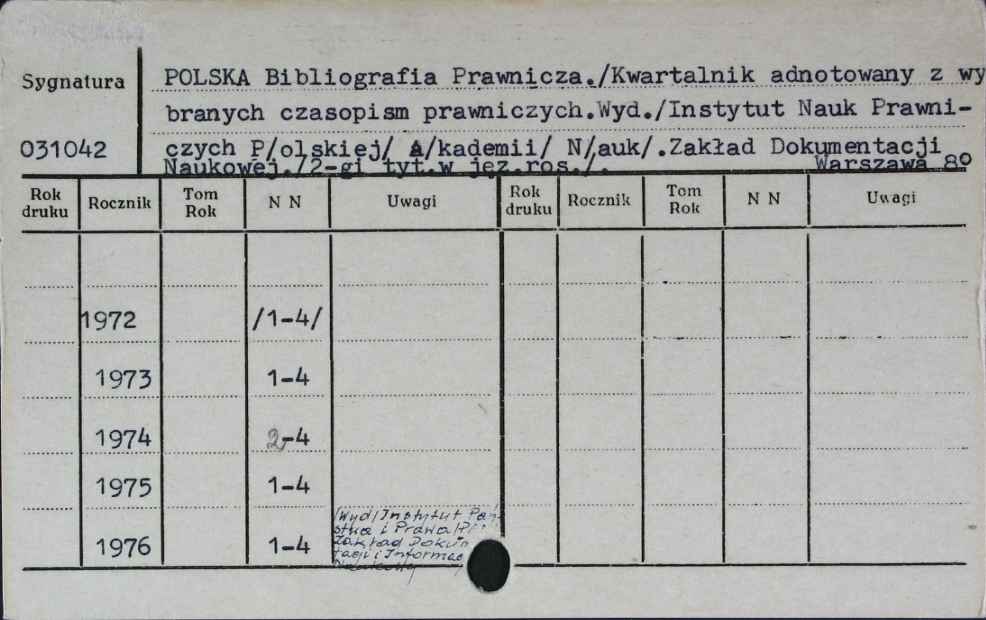 Sygnatura
POLSKA Bibliografia Prawnicza./Kwartalnik adnotowany z wy
branych czasopism prawniczych.Wyd./Instytut Nauk Prawni-
031042
czych P/olskiej/ A/kademii/ N/auk/.Zakład Dokumentacji
Naukowej./2-gi tyt.w jęz.ros./. Warszawa 8º
Rok druku Rocznik Tom Rok N N Uwagi Rok druku Rocznik Tom Rok N N Uwagi
1972 /1-4/
1973 1-4
1974 2-4
1975 1-4
1976 1-4
/Wyd/Instytut Pań
stwa i Prawa
Zakład Doku
tacji i Informac